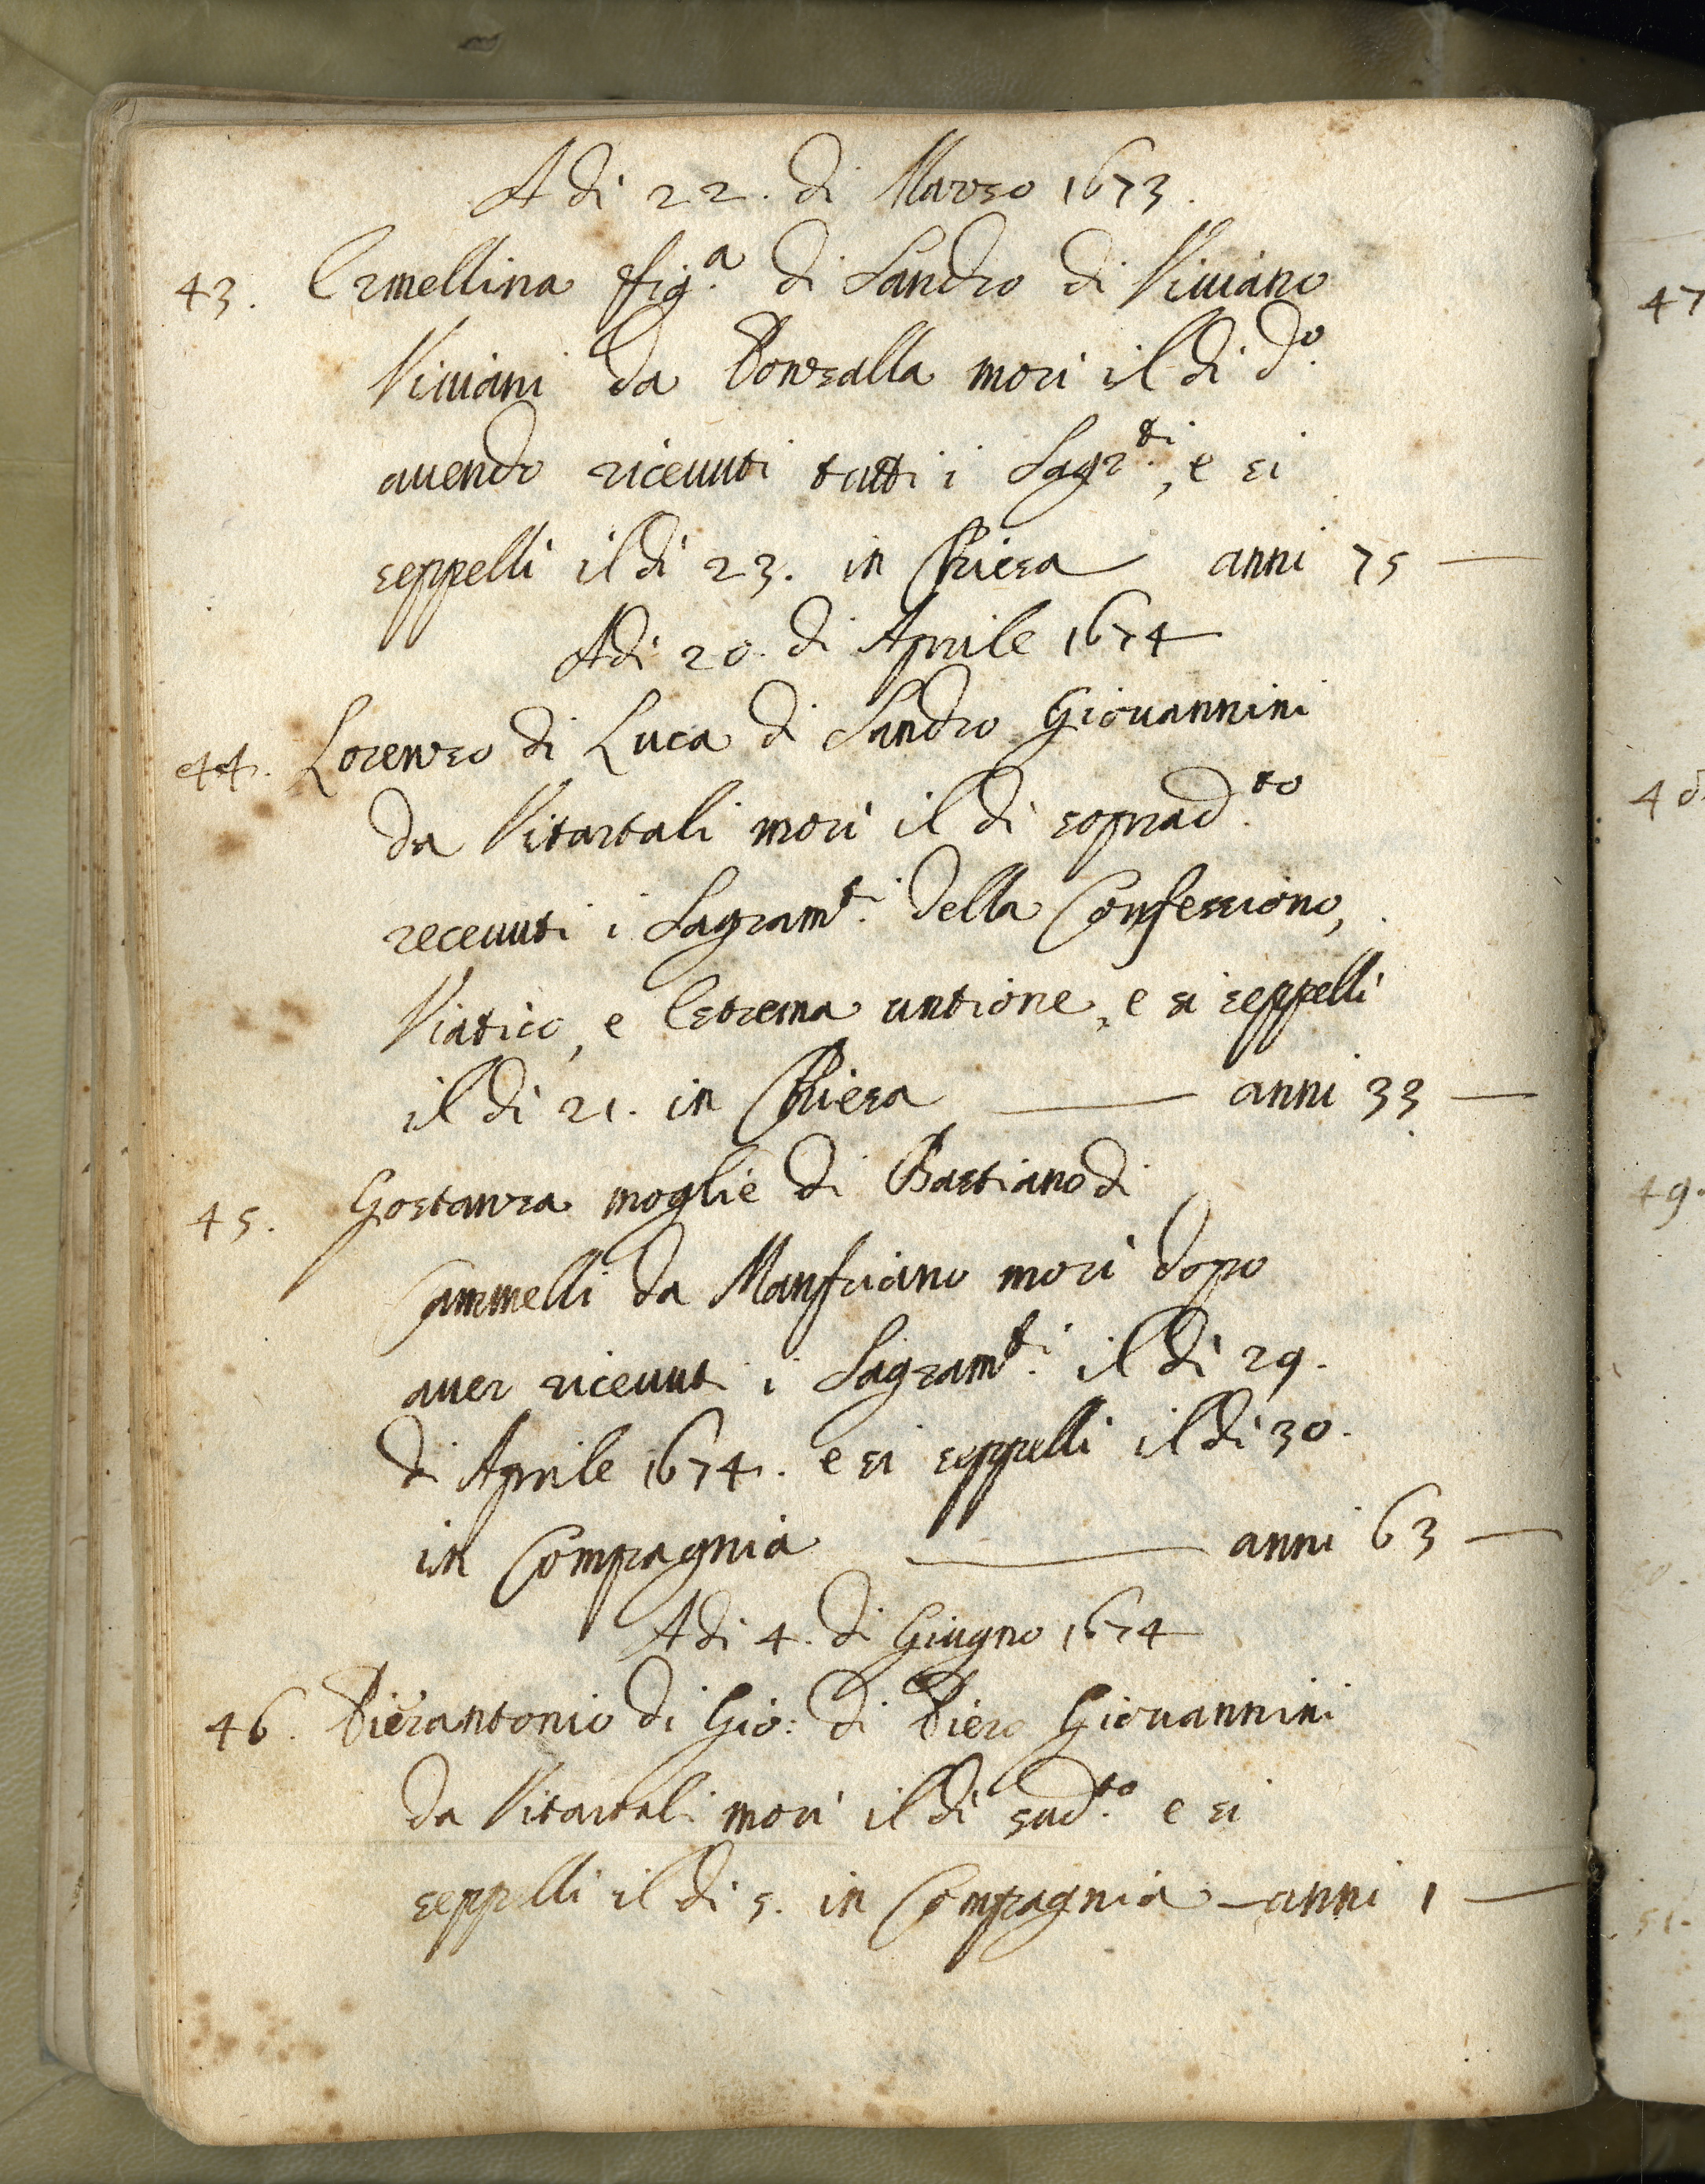 Adi 22. di Marzo 1673.
43. Ermellina fig.a di Sandro di Viviano
Viviani da Ponzalla morì il dì d.o
avendo ricevuti tutti i Sagr.ti, e si
seppellì il dì 23. in Chiesa anni 75 —
Adi 20. di Aprile 1674
44. Lorenzo di Luca di Sandro Giovannini
da Vitartali morì il dì soprad.to
recevuti i Sagram.ti della Confessione,
Viatico, e Estrema untione, e si seppellì
il dì 21. in Chiesa — anni 33 —
45. Gostanza moglie di Bastiano di
Cammelli da Manfriano morì dopo
aver ricevuti i Sagram.ti il dì 29.
di Aprile 1674. e si seppellì il dì 30.
in Compagnia — anni 63 —
Adi 4. di Giugno 1674
46. Pierantonio di Gio: di Piero Giovannini
da Vitartali morì il dì sud.to e si
seppellì il dì 5. in Compagnia — anni 1 —
47
48.
49.
50.
51.